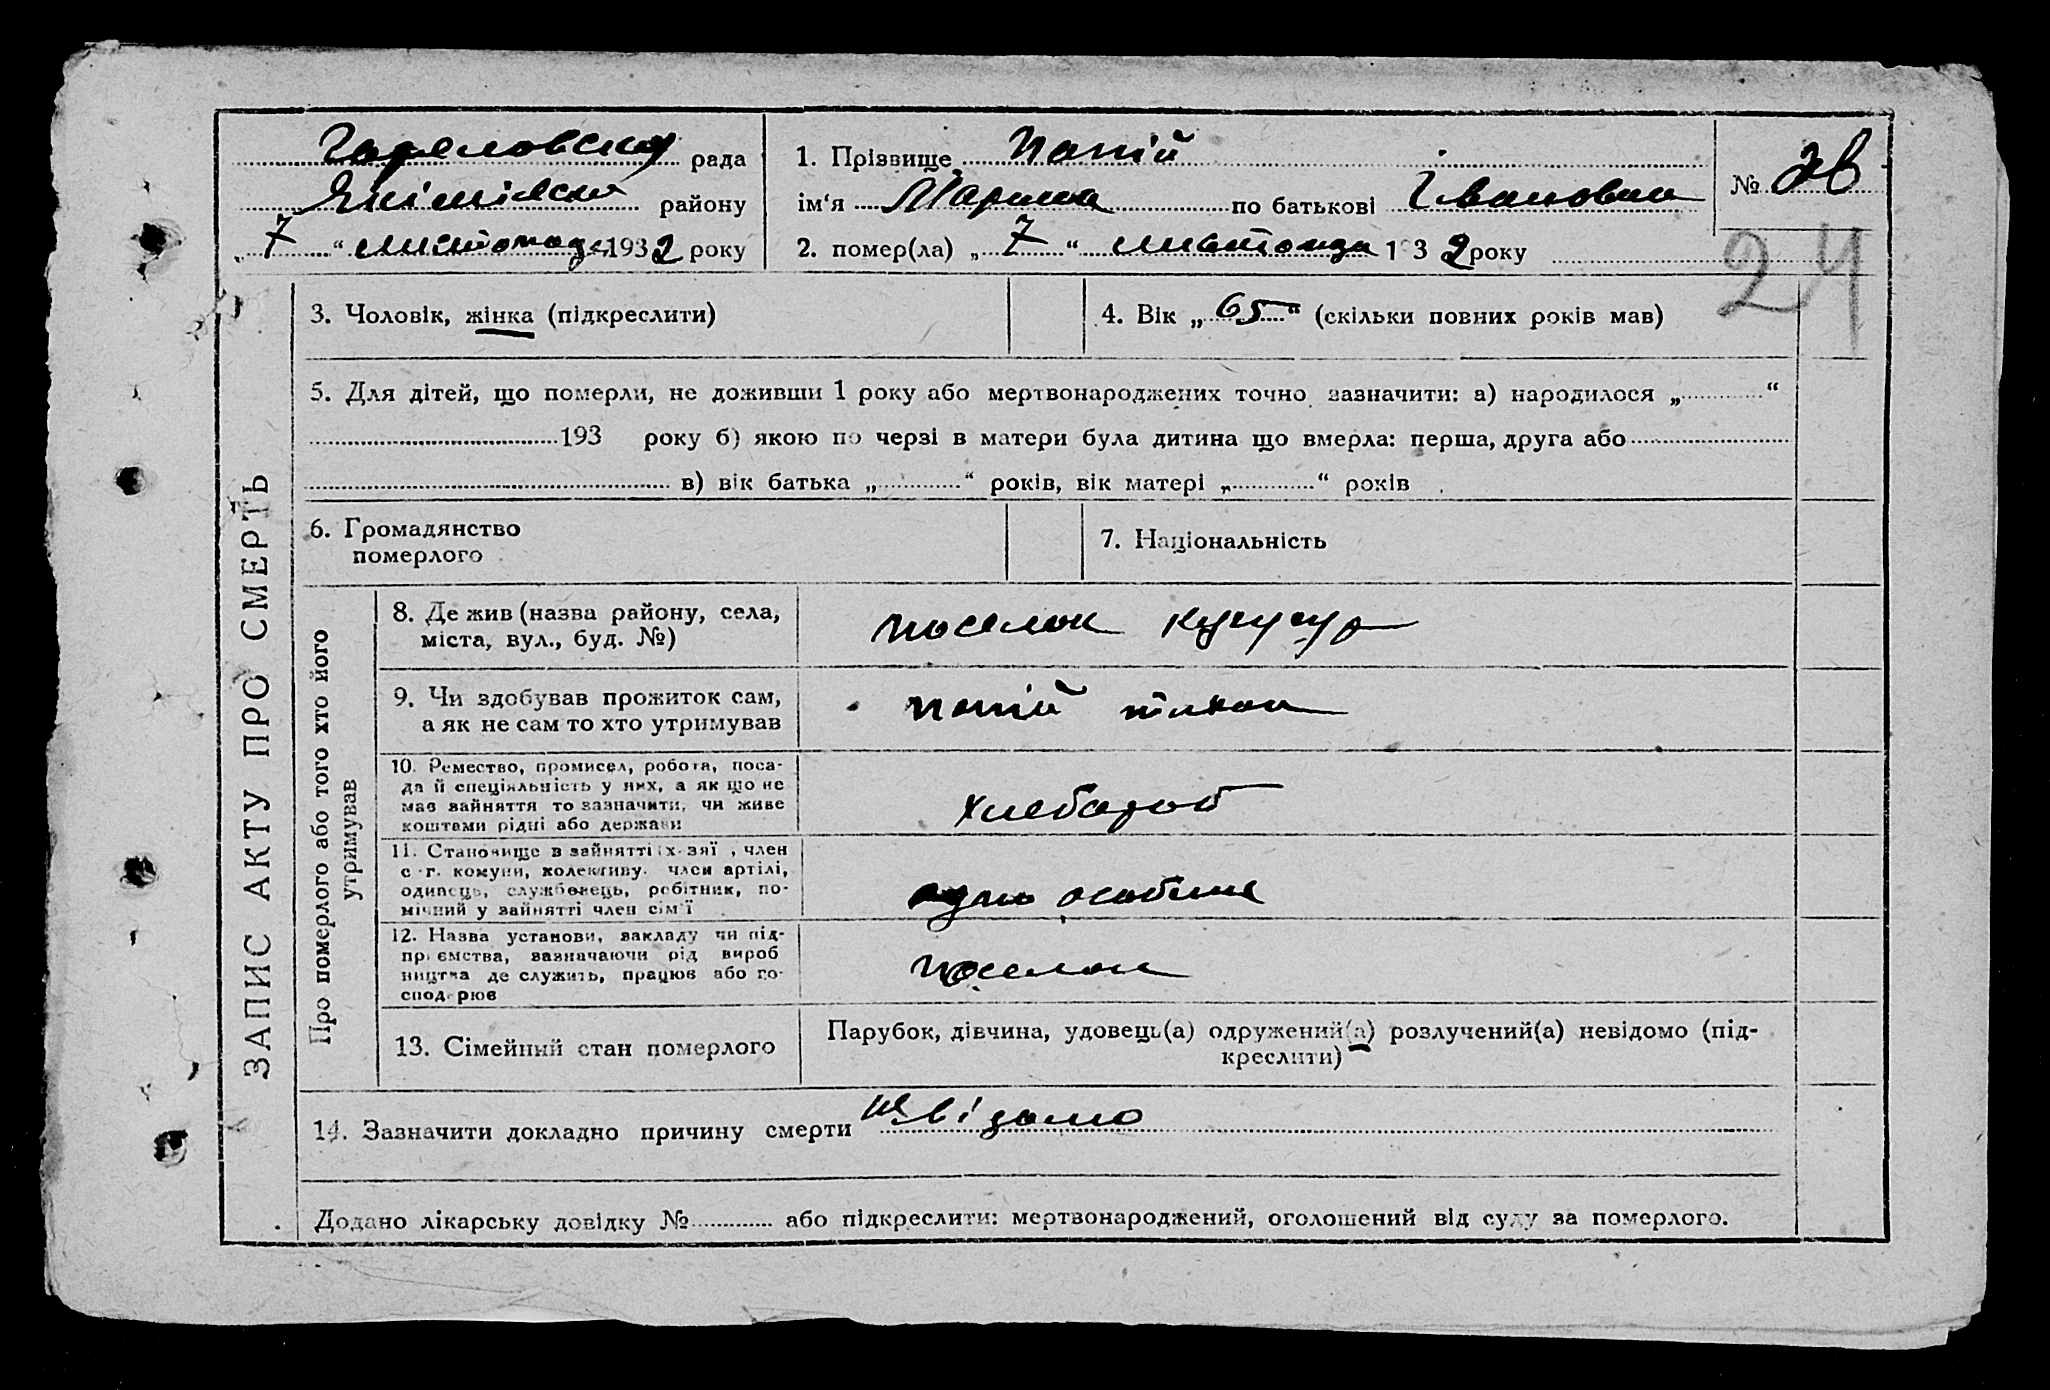 Гореловську рада
Якімівськ району
„ 7 “ листопада 1932 року
1. Прізвище Попій
ім‘я Марина по батькові Івановна
2. помер(ла) „ 7 “ листопада 1932 року
№
24
ЗАПИС АКТУ ПРО СМЕРТЬ
3. Чоловік, жінка (підкреслити)
4. Вік „ 65 “ (скільки повних років мав)
5. Для дітей, що померли, не доживши 1 року або мертвонароджених точно зазначити: а) народилося „ “
193 року б) якою по черзі в матери була дитина що вмерла: перша, друга або
в) вік батька „ “ років, вік матері „ “ років
6. Громадянство
померлого
7. Національність
Про померлого або того хто його
утримував
8. Де жив (назва району, села,
міста, вул., буд. №)
поселок
9. Чи здобував прожиток сам,
а як не сам то хто утримував
Попій
10. Ремество, промисел, робота, поса-
да й спеціяльність у них, а як що не
мав зайняття то зазначити, чи живе
коштами рідні або держави
хлебороб
11. Становище в зайнятті: х-зяї , член
с.-г. комуни, колективу, член артілі,
одинець, службовець, робітник, по-
мічний у зайнятті член сім'ї
12. Назва установи, закладу чи під-
приємства, зазначаючи рід вироб
ництва де служить, працює або го-
сподарює
поселок
13. Сімейний стан померлого
Парубок, дівчина, удовець(а) одружений(а) розлучений(а) невідомо (під-
креслити)
14. Зазначити докладно причину смерти невідомо
Додано лікарську довідку № або підкреслити: мертвонароджений, оголошений від суду за померлого.